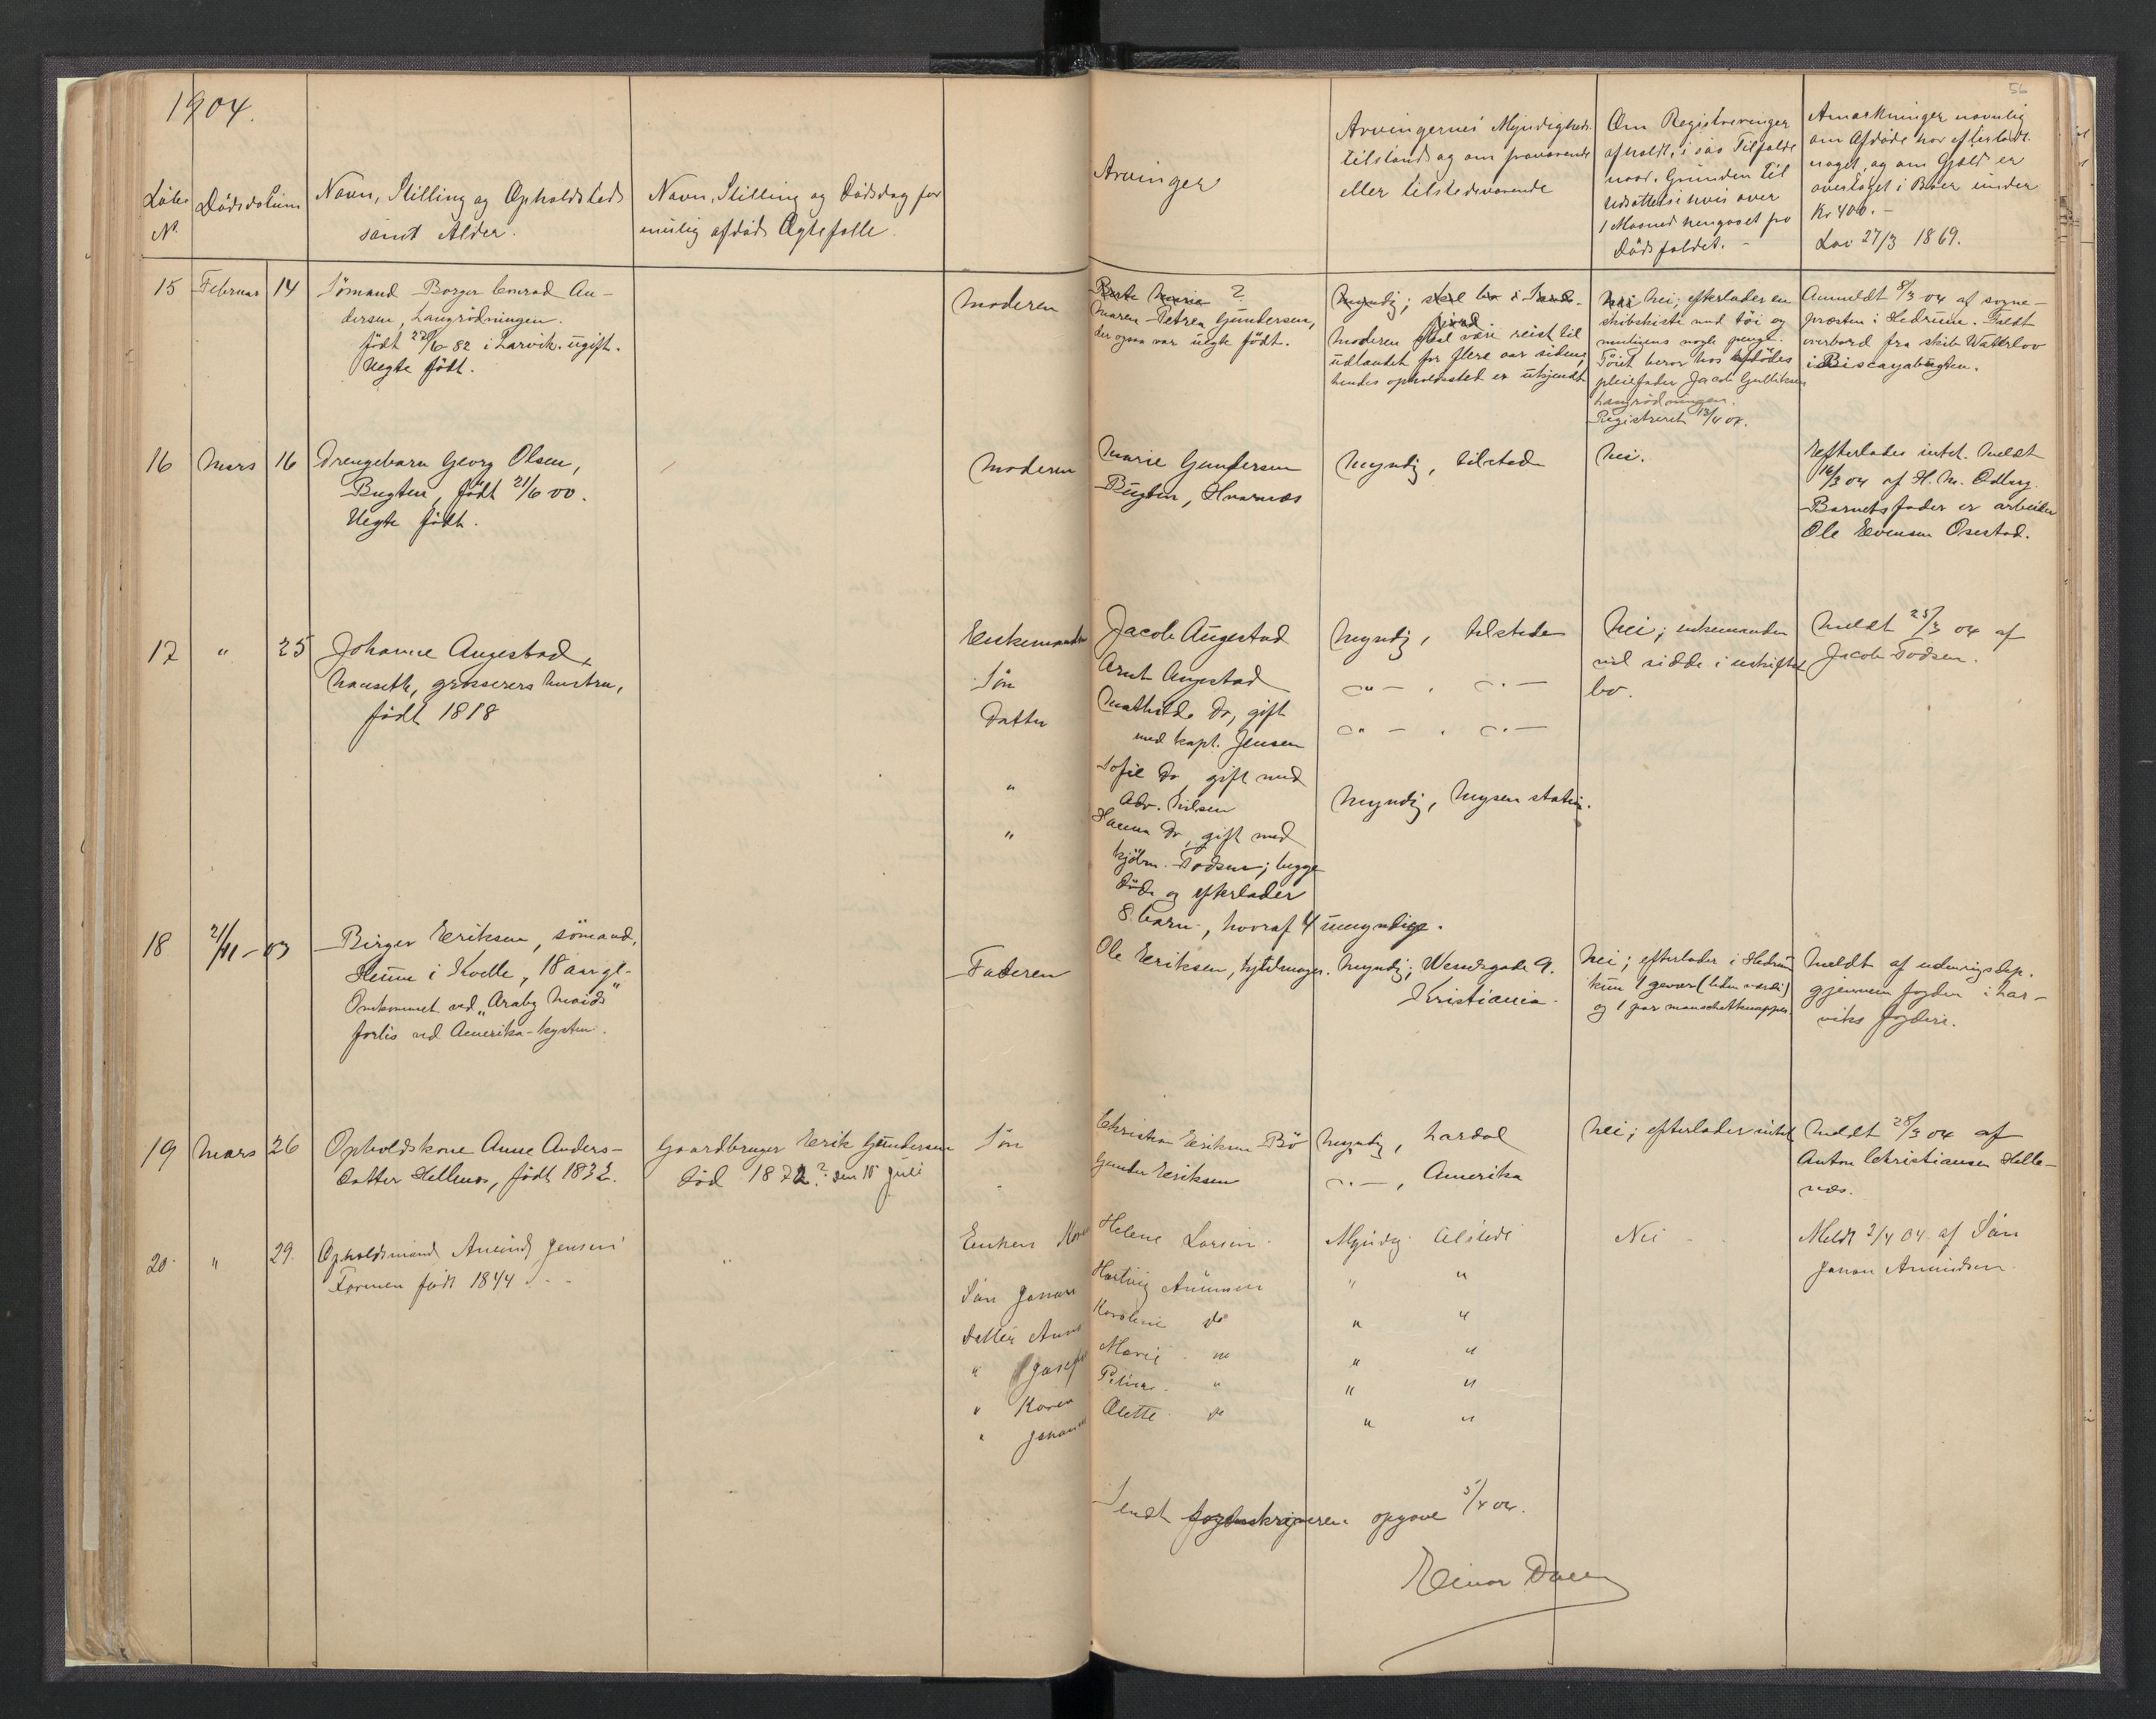 1904.
56
Löbe
No
Dödsdatum
Navn, Stilling og Opholdssted
samt Alder.
Navn, Stilling og Dödsdag for
mulig afdöd Ægtefælle.
Arvinger
Arvingernes Myndigheds
tilstand og om fraværende
eller tilstedeværende
Om Registreringer
afholdt, i saa Tilfælde
naar. Grunden til
Udsættelsi hvis over
1 Maaned hengaaet fra
Dödsfaldet. -
Anmærkninger navnlig
om Afdöde har efterladt
noget, og om Gjæld er
overtaget i Boer under
Kr 400. -
Lov 27/3 1869.
15 Februar 14 Sömand Borger Conrad An-
dersen, Langrödningen.
født 22/6 82 i Larvik. ugift.
Uegte födt.
Moderen
Maria ?
Maren Petrea Gundersen,
der ogsaa var uegte födt.
Myndig; skal bo i
Moderen skal være reist til
udlandet for flere aar siden,
hendes opholdssted er ukjendt
Nei; efterlader en
skibskiste med töi og
muligens nogle penge.
Töiet beror hos afdödes
pleiefader Jacob Gulliksen
Langrödningen.
Registreret 13/4 04.
Anmeldt 8/3 04 af sogne-
presten i Hedrum. Faldt
overbord fra skib Waterloo
i Biscayabugten.
16 Mars 16 Drengebarn Georg Olsen,
Bugten, födt 21/6 00.
Uegte födt.
Moderen
Marie Gundersen
Bugten, Hvarnes
Myndig, tilstede
Nei.
Efterlades intet. Meldt
16/3 04 af H. M. Odberg.
Barnets fader er arbeider
Ole Evensen Osestad.
17 " 25 Johanne Augestad,
Nanseth, grosserers hustru,
födt 1818
Enkemanden
Sön
Datter
"
"
Jacob Augestad
Arnt Augestad
Mathilde Do, gift
med kapt. Jensen
Sofie Do gift med
Adv. Nilsen
Hanna Do, gift med
kjöbm. Todsen; begge
döde og efterlader
8 barn, hvoraf 4 umyndige.
Myndig, tilstede
- " - , - " -
- " - , - " -
Myndig, Mysen station.
Nei; enkemanden
vil sidde i uskiftet
bo.
Meldt 25/3 04 af
Jacob Todsen.
18 21/11 - 03 Birger Eriksen, sömand,
Heum i Kvelle, 18 aar gl.
Omkommet ved "Araby Maids"
forlis ved Amerika-kysten.
Faderen
Ole Eriksen, Myndig; Wesselsgade 9.
Kristiania.
Nei; efterlader i Hedrum
kun 1 gevær (liden værdi)
og 1 par manschetknapper
Meldt af udenrigsdep.
gjennem fogden i Lar-
viks fogderi.
19 Mars 26 Opholdskone Anne Anders-
datter Hellenæs, födt 1832.
Gaardbruger Erik Gundersen
död 1872? den 18 Juli
Sön
"
Christian Eriksen Bö
Gunder Eriksen
Myndig, Lardal
- " -, Amerika
Nei; efterlader intet
Meldt 28/3 04 af
Anton Christiansen Helle-
næs.
20 " 29. Opholdsmand Amund Jensen
Farmen födt 1844
"
Enken Karen
Sön Johan
Datter Anne
" Josefine
" Karen
" Johanne
Helene Larsen
Hartvig Amunsen
Karoline do
Marie "
Petrine "
Olette do
Myndig tilstede
" "
" "
" "
" "
" "
Nei
Meldt 2/4 04 af Sön
Johan Amundsen
Sendt sorenskriveren opgave 5/4 04.
Einar Dalen